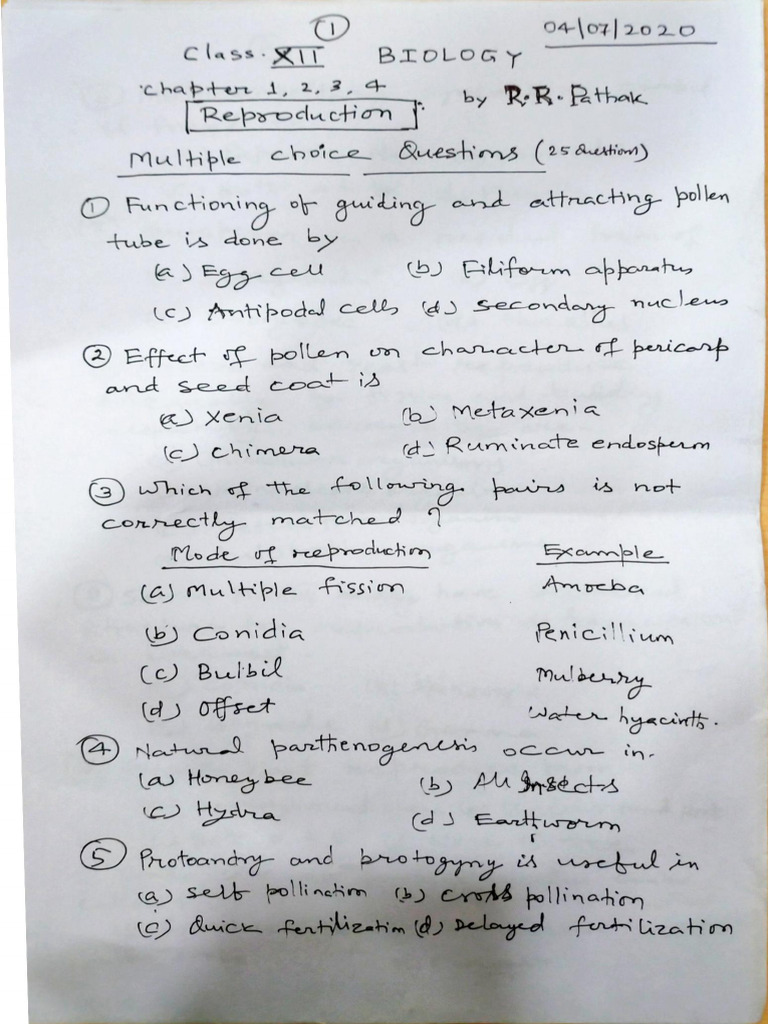 1
04/07/2020
Class. XII BIOLOGY
Chapter 1, 2, 3, 4 by R.R. Pathak
Reproduction
Multiple choice Questions (25 Questions)
① Functioning of guiding and attracting pollen
tube is done by
(a) Egg cell (b) Filiform apparatus
(c) Antipodal cells (d) secondary nucleus
② Effect of pollen on character of pericarp
and seed coat is
(a) Xenia (b) Metaxenia
(c) chimera (d) Ruminate endosperm
③ Which of the following pairs is not
correctly matched ?
Mode of reeproduction Example
(a) Multiple fission Amoeba
(b) Conidia Penicillium
(c) Bulbil Mulberry
(d) Offset Water hyacinth.
④ Natural parthenogenesis occur in.
(a) Honeybee (b) All Insects
(c) Hydra (d) Earthworm
⑤ Protoandry and protogyny is useful in
(a) self pollination (b) cross pollination
(c) Quick fertilization (d) Delayed fertilization